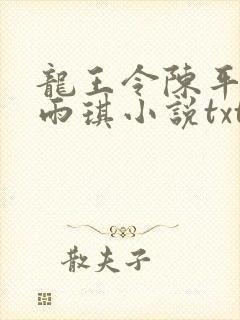 龍王令陳平
雨琪小説txt
散夫子